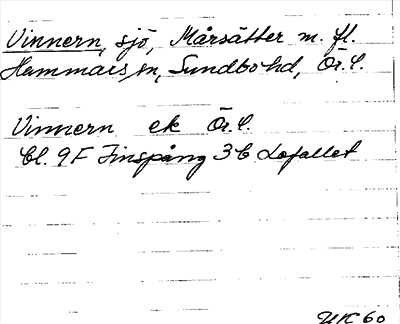 Vinnern, sjö, Mårsätter m. fl.
Hammars sn, Sundbo hd, Ör. l.
Vinnern ek Ör. l.
Bl. 9F Finspång 3b Lofallet